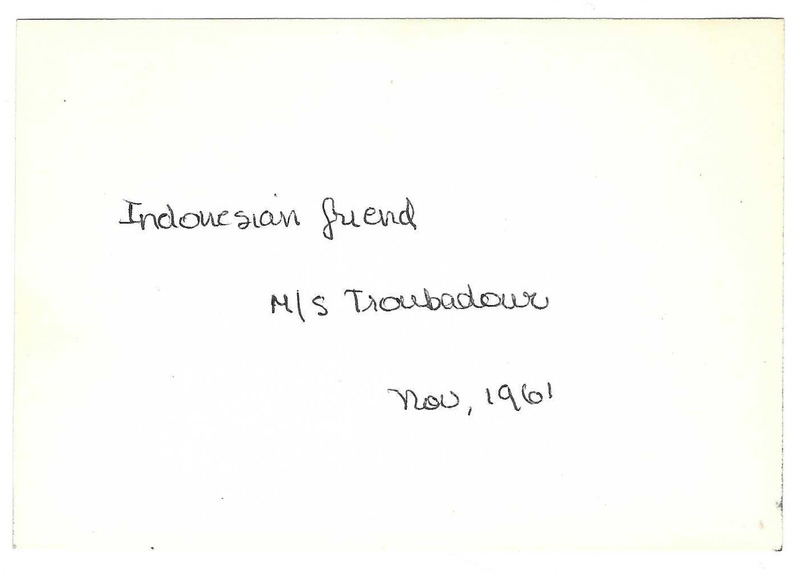 Indonesian friend
M/S Troubadour
Nov, 1961